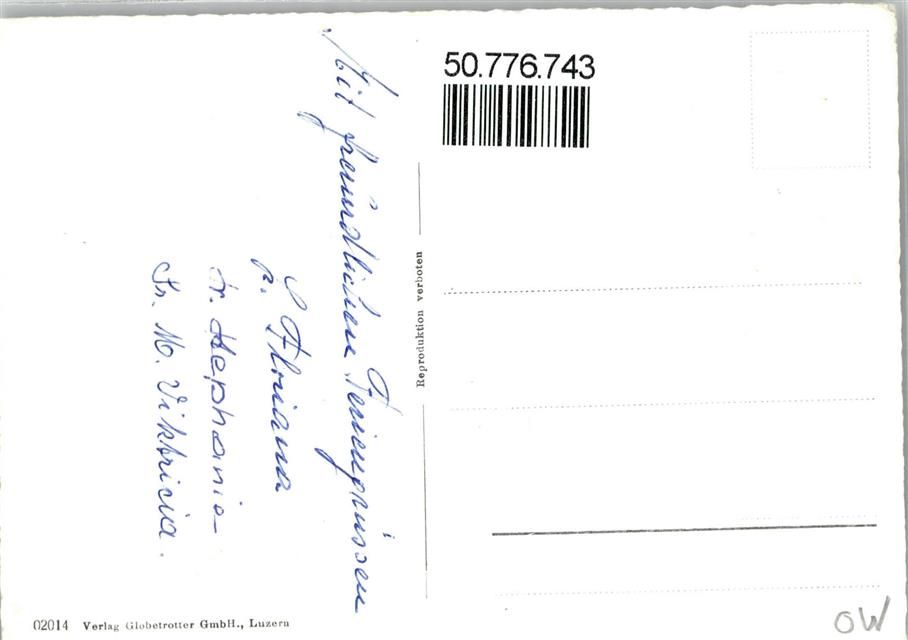 Mit freundlichen Feriengrüssen
S. Floriana
Sr. Stephanie
Sr. M. Viktricia.
50.776.743
Reproduktion verboten
02014 Verlag Globetrotter GmbH., Luzern
OW